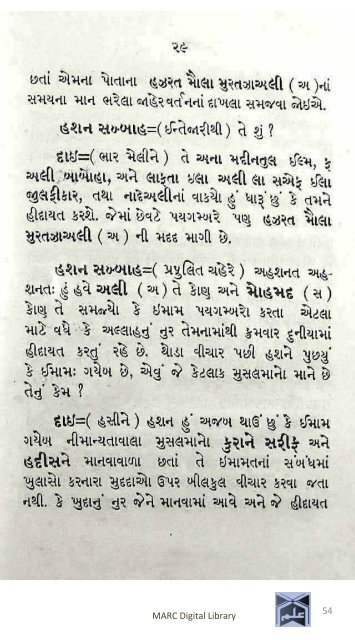 ૨૯
છતાં એમના પોતાના હઝરત મૌલા મુરતઝાઅલી ( અ )નાં
સમયના માન ભરેલા જાહેરવર્તનનાં દાખલા સમજવા જોઇએ.
હશન સબ્બાહ=(ઈન્તેજારીથી) તે શું ?
દાઇ=( ભાર મેલીને ) તે અના મદીનતુલ ઇલ્મ, વ
અલી બાબોહા, અને લાફતા ઇલા અલી લા સએફ ઇલા
જુલફીકાર, તથા નાદેઅલીનાં વાકયો હું ધારૂં છું કે તમને
હીદાયત કરશે. જેમાં છેવટે પયગમ્બરે પણ હઝરત મૌલા
મુરતઝાઅલી ( અ ) ની મદદ માગી છે.
હશન સબ્બાહ=( પ્રફુલિત ચહેરે ) અહશનત અહ-
શનતઃ હું હવે અલી ( અ ) તે કોણ અને મોહમદ ( સ )
કોણ તે સમજ્યો કે ઇમામ પયગમ્બરો કરતા એટલા
માટે વધે કે અલ્લાહનું નુર તેમનામાંથી ક્રમવાર દુનીયામાં
હીદાયત કરતું રહે છે. થોડા વીચાર પછી હશને પુછયું
કે ઈમામઃ ગયેબ છે, એવું જે કેટલાક મુસલમાનો માને છે
તેનું કેમ ?
દાઇ=( હસીને ) હશન હું અજબ થાઉં છું કે ઈમામ
ગયેબ નીમાન્યતાવાલા મુસલમાનો કુરાને સરીફ અને
હદીસને માનવાવાળા છતાં તે ઇમામતનાં સંબંધમાં
ખુલાસો કરનારા મુદદાઓ ઉપર બીલકુલ વીચાર કરવા જતા
નથી. કે ખુદાનું નુર જેને માનવામાં આવે અને જે હીદાયત
MARC Digital Library
54